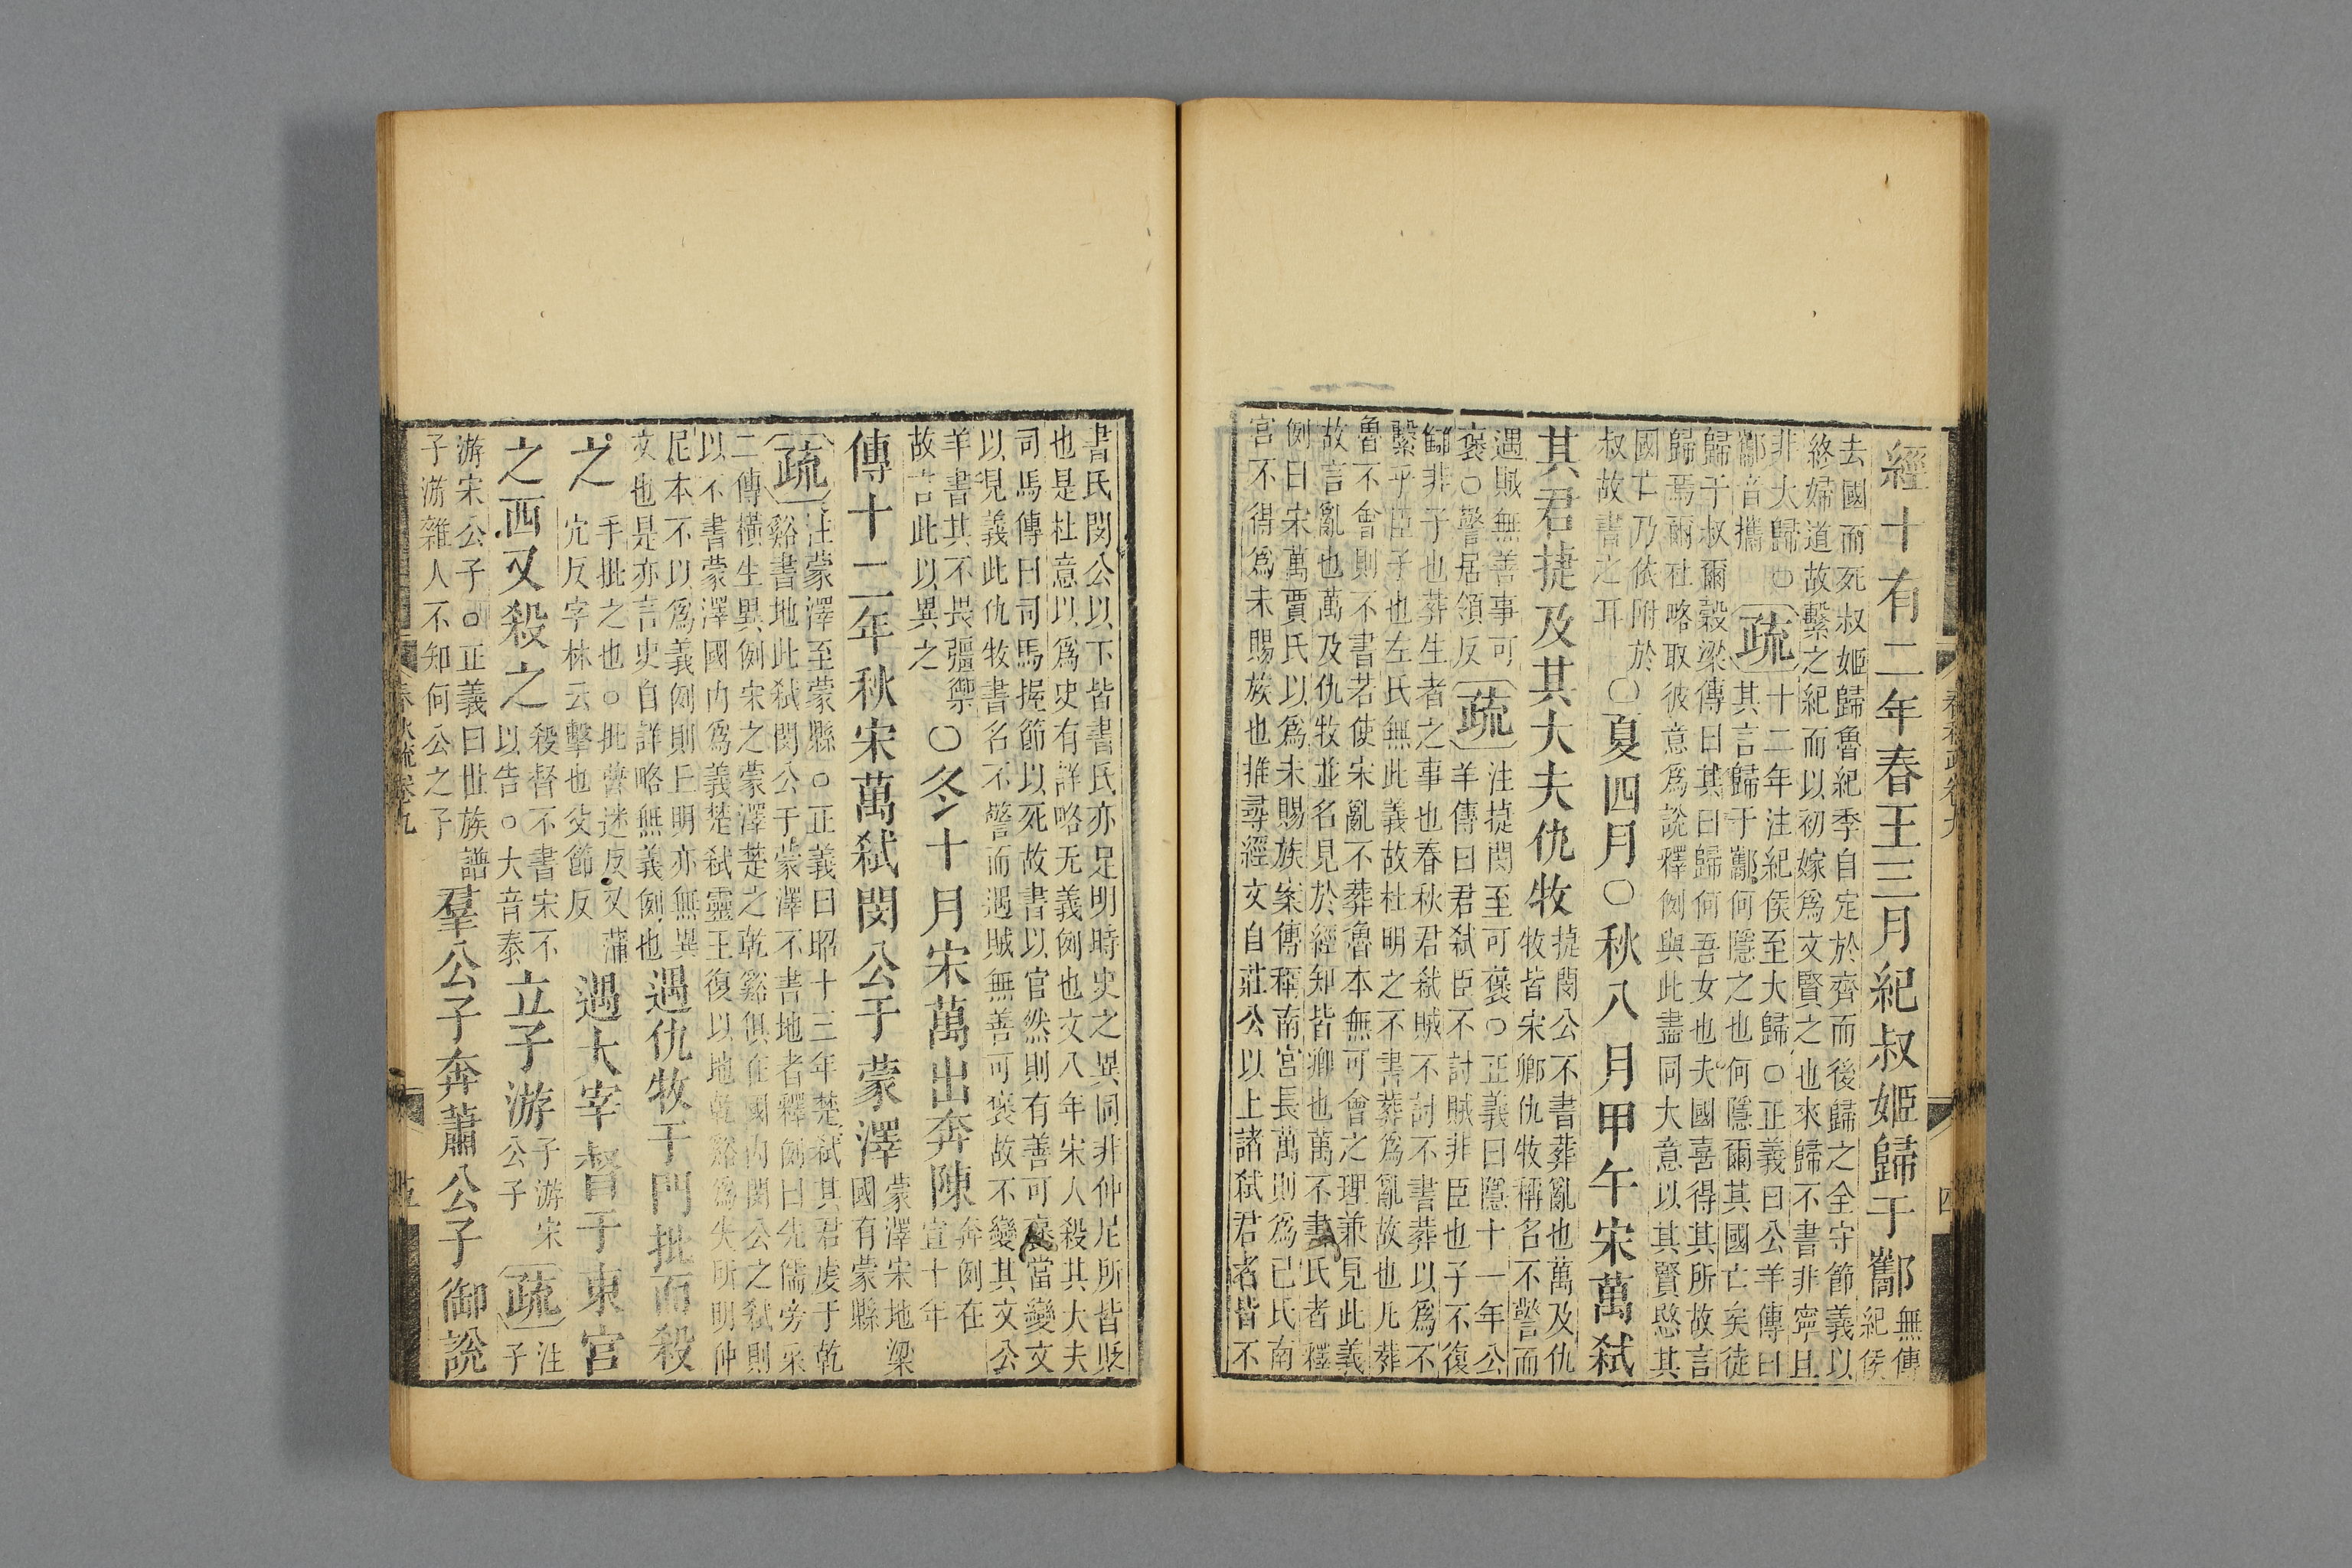 經十有二年春王三月紀叔姬歸于酅無傳紀侯
去國而死叔姬歸魯紀季自定於齊而後歸之全守節義以
終婦道故繫之紀而以初嫁爲文賢之也來歸不書非寧且
非大歸○酅音攜
疏十二年注紀侯至大歸○正義曰公羊傳曰其言歸于酅何隱之也何隱爾其國亡矣徒
歸于叔爾穀梁傳曰其曰歸何吾女也夫國喜得其所故言
歸焉爾杜略取彼意爲說釋例與此盡同大意以其賢愍其
國亡乃依附於
叔故書之耳
○夏四月○秋八月甲午宋萬弒
其君捷及其大夫仇牧捷閔公不書葬亂也萬及仇牧皆宋卿仇牧稱名不警而
遇賊無善事可
褒○警居領反
疏注捷閔至可褒○正義曰隱十一年公羊傳曰君弒臣不討賊非臣也子不復
讎非子也葬生者之事也春秋君弒賊不討不書葬以爲不
繫乎臣子也左氏無此義故杜明之不書葬爲亂故也凡葬
魯不會則不書若使宋亂不葬魯本無可會之理兼見此義
故言亂也萬及仇牧並名見於經知皆卿也萬不書氏者釋
例曰宋萬賈氏以爲未賜族案傳稱南宮長萬則爲已氏南
宮不得爲未賜族也推尋經文自莊公以上諸弒君者皆不
書氏閔公以下皆書氏亦足明時史之異同非仲尼所皆貶
也是杜意以爲史有詳略无義例也文八年宋人殺其大夫
司馬傳曰司馬握節以死故書以官然則有善可褒當變文
以見義此仇牧書名不警而遇賊無善可褒故不變其文公
羊書其不畏彊禦
故言此以異之
○冬十月宋萬出奔陳奔例在宣十年
傳十二年秋宋萬弒閔公于蒙澤蒙澤宋地梁國有蒙縣
疏注蒙澤至蒙縣○正義曰昭十三年楚弒其君虔于乾
谿書地此弒閔公于蒙澤不書地者釋例曰先儒旁采
二傳橫生異例宋之蒙澤楚之乾谿俱在國內閔公之弒則
以不書蒙澤國內爲義楚弒靈王復以地乾谿爲失所明仲
尼本不以爲義例則丘明亦無異
文也是亦言史自詳略無義例也
遇仇牧于門批而殺
之手批之也○批普迷反又蒲
穴反字林云擊也父節反
遇大宰督于東宮
之西又殺之殺督不書宋不以告○大音泰
立子游子游宋公子
疏注子
游宋公子○正義曰世族譜
子游雜人不知何公之子
羣公子奔蕭公子御說